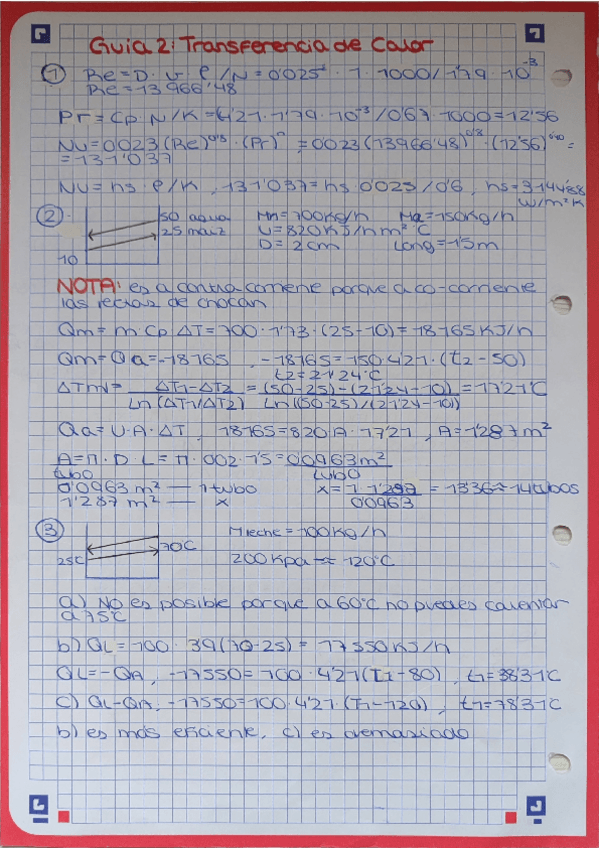 Guia 2: Transferencia de Calor
① Re = D · v · ρ / N = 0'025 · 1 · 1000 / 1'79 · 10⁻³
Re = 13966'48
Pr = Cp · N / K = 4'21 · 1'79 · 10⁻³ / 0'6 · 1000 = 12'56
Nu = 0'023 (Re)^0'8 · (Pr)^n = 0'023 (13966'48)^0'8 · (12'56)^0'40 =
= 131'037
Nu = hs · ρ / K , 131'037 = hs · 0'025 / 0'6 , hs = 3144'88
W/m² K
② 50 agua Mm = 700 kg/h Ma = 150 kg/h
25 maiz U = 820 KJ/h m² °C
10 D = 2 cm Long = 1'5 m
NOTA: es a contra corriente porque a co-corriente
las rectas de chocan
Qm = m · Cp · ΔT = 700 · 1'73 · (25 - 10) = 18165 KJ/h
Qm = Qa = -18165 , -18165 = 150 · 4'21 · (t₂ - 50)
t₂ = 21'24 °C
ΔTml = ΔT₁ - ΔT₂ / Ln (ΔT₁/ΔT₂) = (50 - 25) - (21'24 - 10) / Ln ((50 - 25) / (21'24 - 10)) = 17'21 °C
Qa = U · A · ΔT , 18165 = 820 · A · 17'21 , A = 1'287 m²
A = π · D · L = π · 0'02 · 1'5 = 0'0963 m²
tubo tubo
0'0963 m² — 1 tubo x = 1 · 1'287 / 0'0963 = 13'36 ≈ 14 tubos
1'287 m² — x
③ 70C M leche = 100 Kg/h
25C 200 Kpa ≈ 120°C
a) No es posible porque a 60°C no puedes calentar
a 75°C
b) QL = 100 · 3'9 (70 - 25) = 17550 KJ/h
QL = -QA , -17550 = 100 · 4'21 (T₁ - 80) , t₁ = 38'31C
c) QL - QA , -17550 = 100 · 4'21 · (T₁ - 120) , t₁ = 78'31C
b) es más eficiente, c) es demasiado